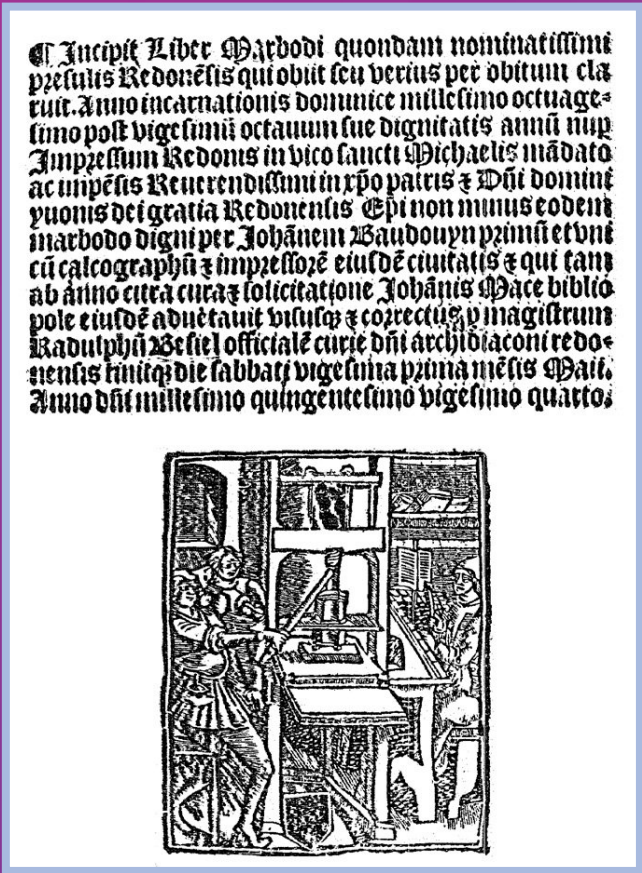 ¶ Incipit Liber Marbodi quondam nominatissimi
presulis Redonēsis qui obiit seu verius per obitum cla
ruit. Anno incarnationis dominice millesimo octuage⸗
simo post vigesimū octauum sue dignitatis annū nup
Impressum Redonis in vico sancti Michaelis mādato
ac impēsis Reuerendissimi in xp̄o patris ⁊ Dn̄i domini
yuonis dei gratia Redonensis Epi non minus eodem
marbodo digni per Johānem Baudouyn primū et vni
cū calcographū ⁊ impressorē eiusdē ciuitatis ⁊ qui tam
ab anno citra cura ⁊ solicitatione Johānis Mace biblio
pole eiusdē aduētauit visusqꝫ ⁊ correctus p magistrum
Radulphū Besiel officialē curie dn̄i archidiaconi redo⸗
nensis finitqꝫ die sabbati vigesima prima mēsis Maii.
Anno dn̄i millesimo quingentesimo vigesimo quarto.